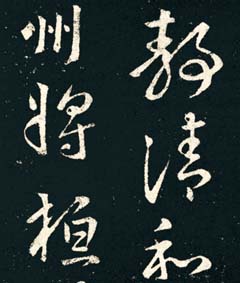 靜清和
州將桓